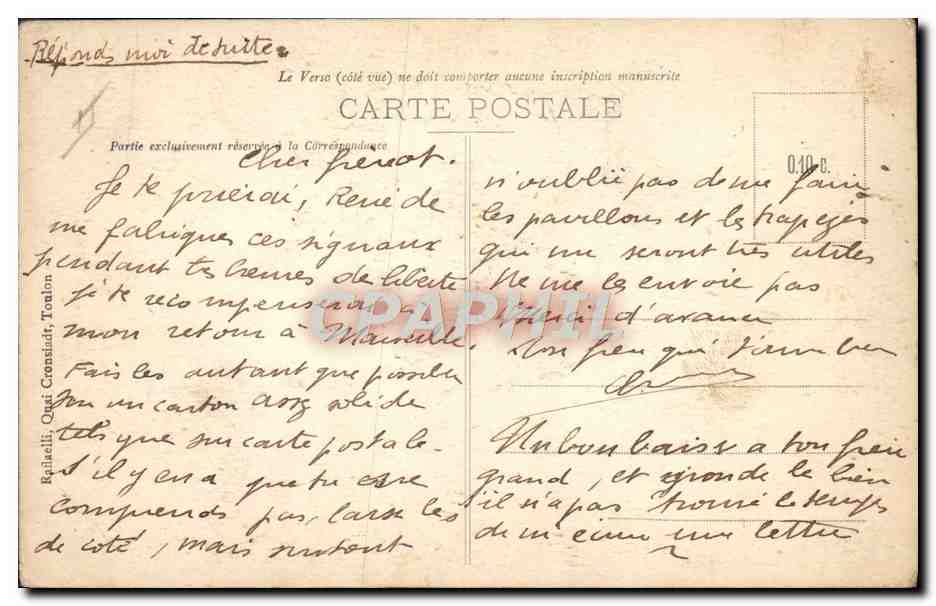 Réponds moi de suite.
Le Verso (côté vue) ne doit comporter aucune inscription manuscrite
CARTE POSTALE
Partie exclusivement réservée à la Correspondance
0.10 c.
Cher frérot.
Je te prierai, René de
me fabriquer ces signaux
pendant tes heures de liberté
je te recompenserai à
mon retour à Marseille.
Fais les autant que possible
sur un carton assez solide
tels que sur carte postale.
S'il y en a que tu
comprends pas, laisse les
de coté, mais surtout
n'oublie pas de me faire
les pavillons et les trapèzes
qui me seront très utiles
Ne me les envoie pas
Merci d'avance
Ton frère qui t'aime bien
Un bon baiser a ton frère
grand, et gronde le bien
il n'a pas trouvé le temps
de m'ecrire une lettre
Rafaelli, Quai Cronstadt, Toulon
CPAPHIL